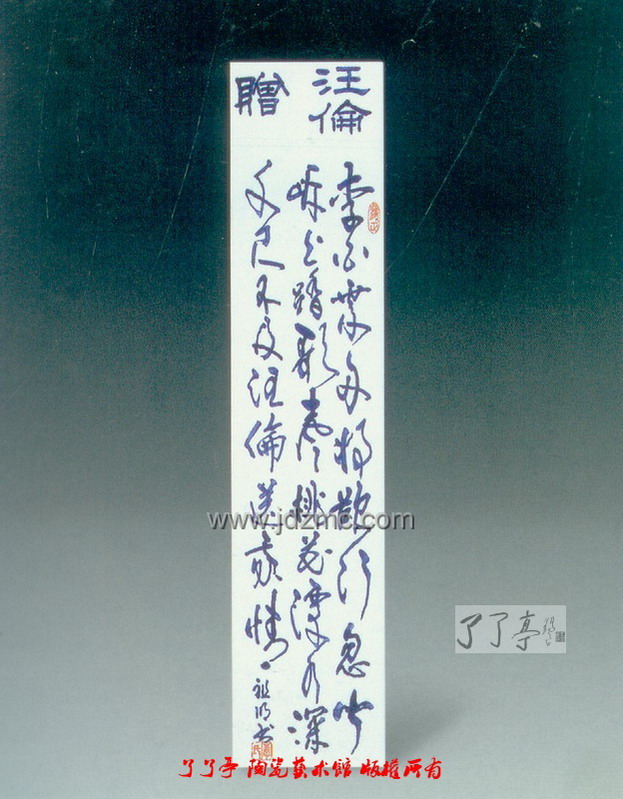 贈
汪倫
李白乘舟將欲行忽聞
岸上踏歌聲桃花潭水深
千尺不及汪倫送我情
www.jdzmc.com
了了亭
了了亭 陶瓷藝术館 版權所有